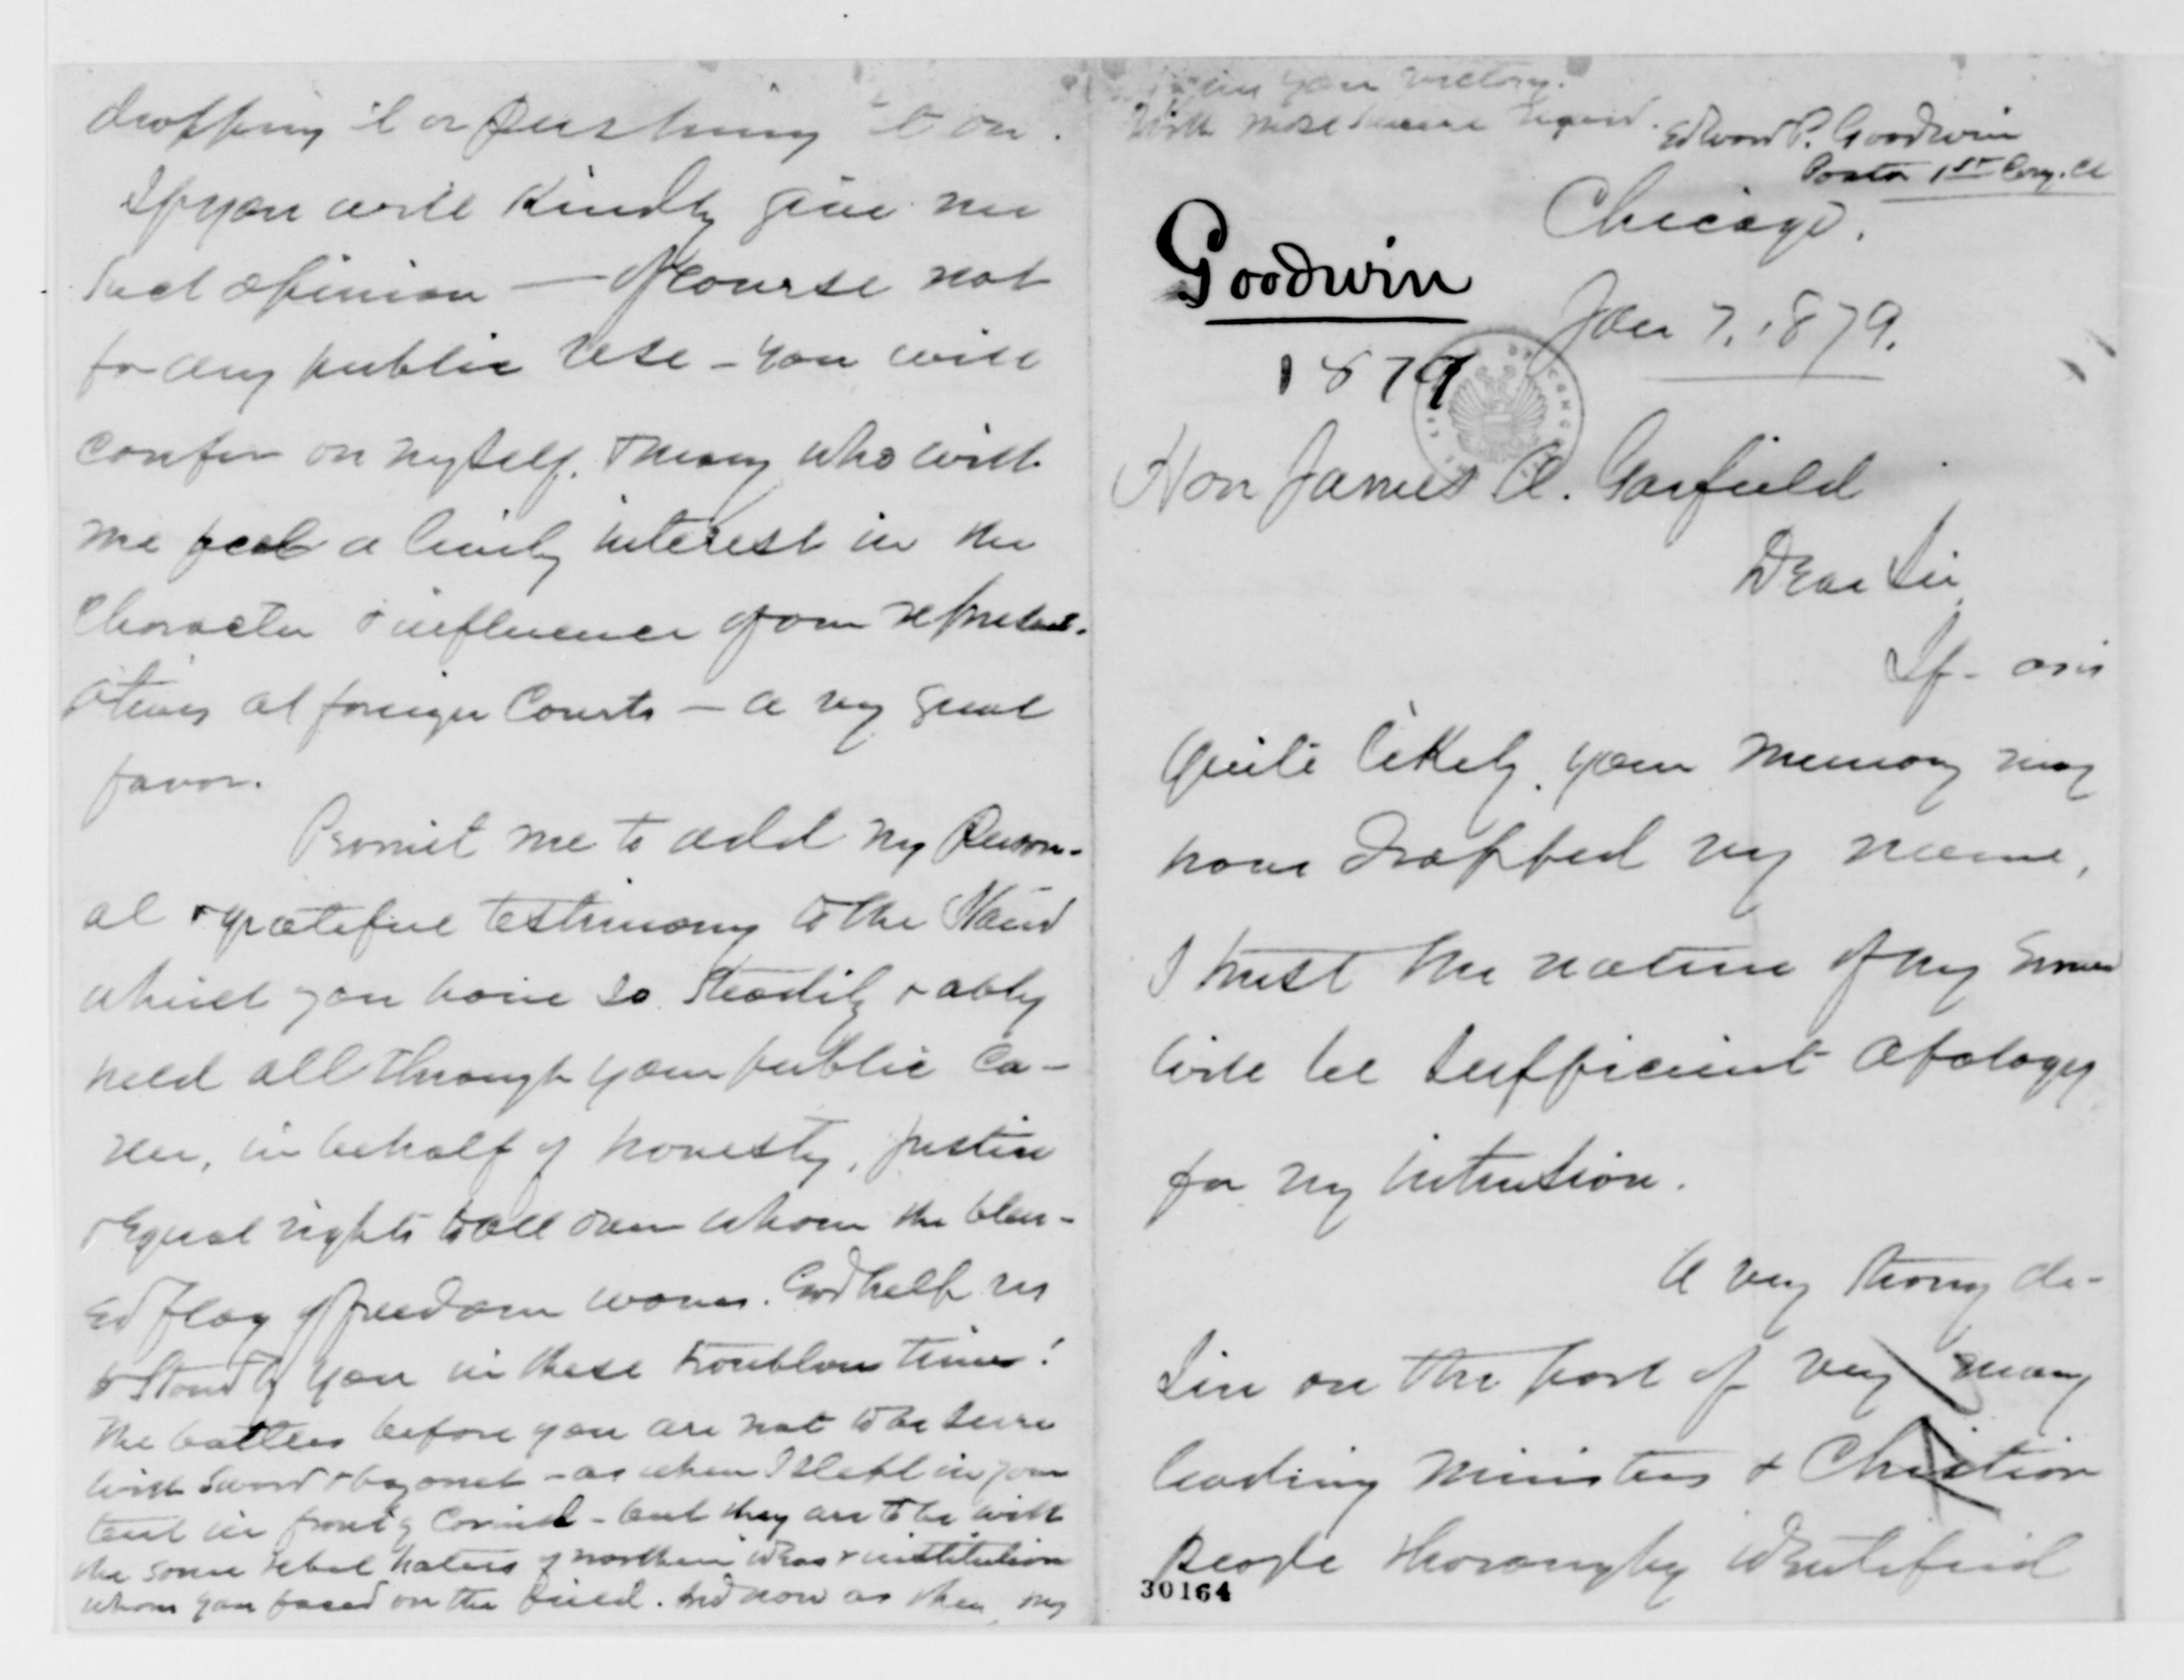 dropping it or pushing it on.
If you will kindly give me
such opinion — of course not
for any public use — you will
confer on myself, & many who with
me feel a lively interest in the
character & influence of our represent-
atives at foreign Courts — a very great
favor.
Permit me to add my person-
al & grateful testimony to the stand
which you have so steadily & ably
held all through your public ca-
reer, in behalf of honesty, justice
& equal rights to all over whom the bless-
ed flag of freedom waves. God help us
to stand by you in these troublous times!
The battles before you are not to be
with sword & bayonet — as when I slept in your
tent in front of Corinth — but they are to be with
the same rebel haters of northern ideas & institutions
whom you faced on the field. And now as then, may
give you victory.
With most sincere regard.
Edward P. Goodwin
Pastor 1st Cong. Ch
Chicago.
Goodwin
1879
Jan 7, 1879.
Hon James A. Garfield
Dear Sir
If — as is
quite likely, your memory may
have dropped my name,
I trust the nature of my errand
will be sufficient apology
for my intrusion.
A very strong de-
sire on the part of very many
leading ministers & Christian
people thoroughly identified
30164